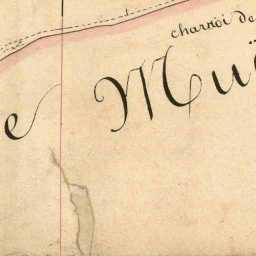 charroi de
e Muï